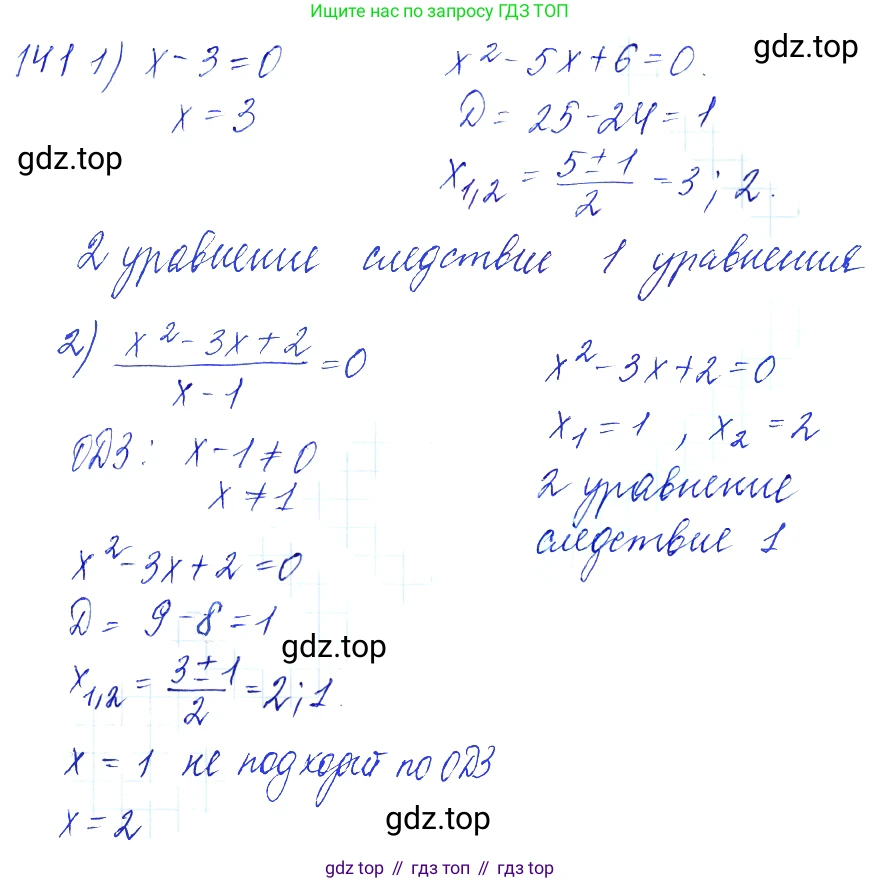 Ищите нас по запросу ГДЗ ТОП
141 1) x - 3 = 0
x = 3
x² - 5x + 6 = 0.
D = 25 - 24 = 1
x₁,₂ = (5 ± 1)/2 = 3; 2.
gdz.top
gdz.top
2 уравнение следствие 1 уравнения
2) (x² - 3x + 2)/(x - 1) = 0
ОДЗ: x - 1 ≠ 0
x ≠ 1
x² - 3x + 2 = 0
D = 9 - 8 = 1
x₁,₂ = (3 ± 1)/2 = 2; 1.
gdz.top
x = 1 не подходит по ОДЗ
x = 2
x² - 3x + 2 = 0
x₁ = 1, x₂ = 2
2 уравнение
следствие 1
gdz.top
gdz top // гдз топ // гдз top